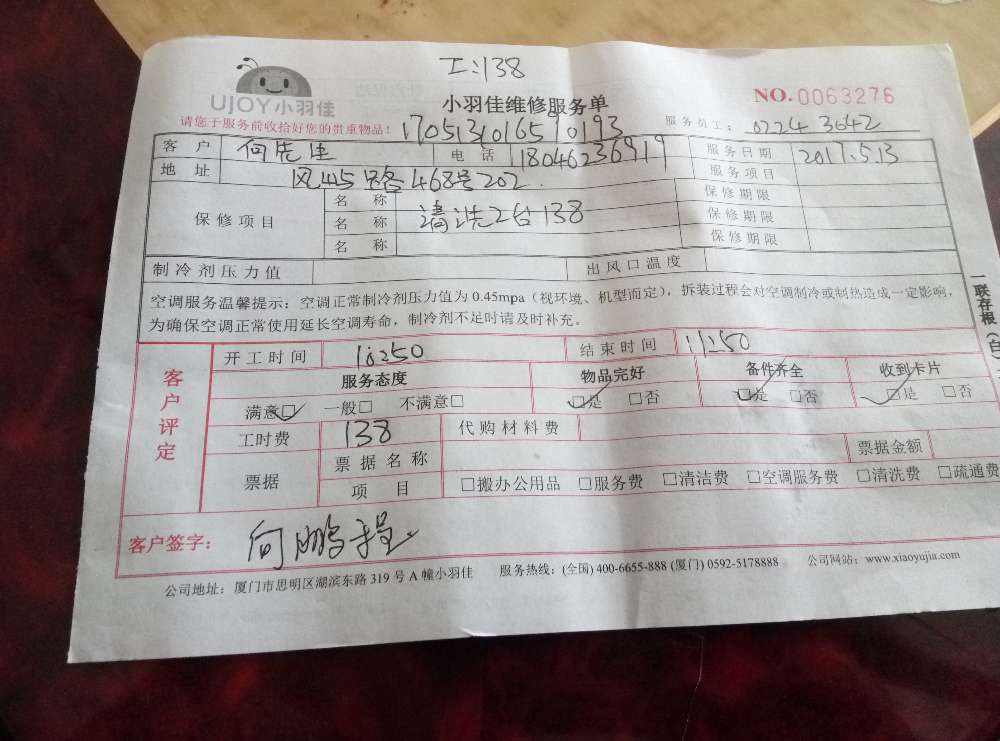 工:138
UJOY小羽佳
小羽佳维修服务单
NO.0063276
请您于服务前收拾好您的贵重物品!
17051310165910193
服务员工: 0224 3642
客户 何先生 电话 18046236919 服务日期 2017.5.13
地址 468号202 服务项目
保修项目 名称 保修期限
名称 清洗2台138 保修期限
名称 保修期限
制冷剂压力值 出风口温度
空调服务温馨提示:空调正常制冷剂压力值为0.45mpa(视环境、机型而定),拆装过程会对空调制冷或制热造成一定影响,
为确保空调正常使用延长空调寿命,制冷剂不足时请及时补充。
一联存根(白
客户评定
开工时间 10:50 结束时间 11:50
服务态度 物品完好 备件齐全 收到卡片
满意☑ 一般□ 不满意□ ☑是 □否 ☑是 □否 ☑是 □否
工时费 138 代购材料费
票据 票据名称 票据金额
项目 □搬办公用品 □服务费 □清洁费 □空调服务费 □清洗费 □疏通费
客户签字: 何鹏程
公司地址:厦门市思明区湖滨东路319号A幢小羽佳 服务热线:(全国)400-6655-888 (厦门) 0592-5178888 公司网站:www.xiaoyujia.com